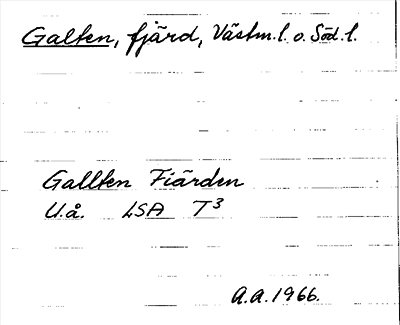 Galten, fjärd, Västm.l. o. Söd.l.
Gallten Fiärden
U.å. LSA T3
A.A. 1966.